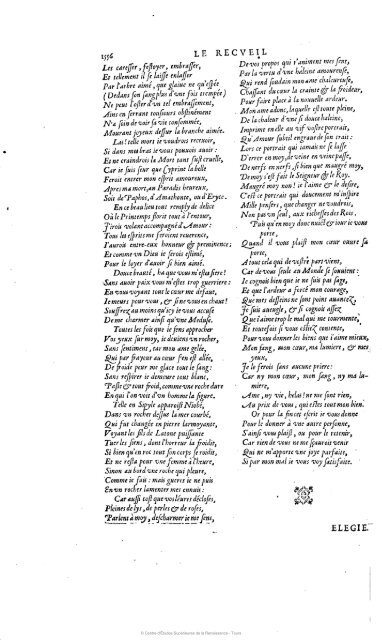 1556
LE RECVEIL
Les caresser, festoyer, embrasser,
Et tellement il se laisse enlasser
Par l'arbre aimé, que glaiue ne qu'espée
(Dedans son sang plus d'vne fois trempée)
Ne peut l'oster d'vn tel embrassement,
Ains en serrant tousiours obstinément
N'a soin de voir sa vie consommée,
Mourant joyeux dessur la branche aimée.
Las! telle mort ie voudrois receuoir,
Si dans mes bras ie vous pouuois auoir:
Et ne craindrois la Mort tant fust cruelle,
Car ie suis seur que Cyprine la belle
Feroit entrer mon esprit amoureux,
Apres ma mort, au Paradis heureux,
Soit de Paphos, d'Amathonte, ou d'Eryce.
En ce beau lieu tout remply de delice
Où le Printemps florit tout à l'entour,
J'irois volant accompagné d'Amour:
Tous les esprits me feroient reuerence,
J'aurois entre-eux honneur & preminence;
Et comme vn Dieu ie serois estimé,
Pour le loyer d'auoir si bien aimé.
Douce beauté, ha que vous m'estes fiere!
Sans auoir paix vous m'estes trop guerriere:
En vous voyant tout le cœur me defaut,
Ie meurs pour vous, & si ne vous en chaut!
Souffrez au moins qu'icy ie vous accuse
De me charmer ainsi qu'vne Meduse.
Toutes les fois que ie sens approcher
Vos yeux sur moy, ie deuiens vn rocher,
Sans sentiment, tant mon ame gelée,
Qui par frayeur au cœur s'en est allée,
De froide peur me glace tout le sang:
Sans respirer ie demeure tout blanc,
Passe & tout froid, comme vne roche dure
En qui l'on voit d'vn homme la figure.
Telle en Sipyle apparoist Niobé,
Dans vn rocher dessus la mer courbé,
Qui fut changée en pierre larmoyante,
Voyant les fils de Latone puissante
Tuer les siens, dont l'horreur la froidit,
Si bien qu'en roc tout son corps se roidit,
Et ne resta pour vne femme à l'heure,
Sinon au bord vne roche qui pleure,
Comme ie fais: mais guiere ie ne puis
En vn rocher lamenter mes ennuis:
Car aussi tost que vos léures décloses,
Pleines de lys, de perles & de roses,
Parlent à moy, descharmer ie me sens,
De vos propos qui r'animent mes sens,
Par la vertu d'vne haleine amoureuse,
Qui rend soudain mon ame chaleureuse,
Chassant du cœur la crainte & la froideur,
Pour faire place à la nouuelle ardeur.
Mon ame adonc, laquelle est toute pleine,
De la chaleur d'vne si douce haleine,
Imprime en elle au vif vostre portrait,
Qu'Amour subtil engraue de son trait:
Lors ce portrait qui iamais ne se lasse
D'errer en moy, de veine en veine passe,
De nerfs en nerfs, si bien que maugré moy,
De moy s'est fait le Seigneur & le Roy.
Maugré moy non! ie l'aime & le desire,
C'est ce portrait qui doucement m'inspire
Mille pensers, que changer ne voudrois,
Non pas vn seul, aux richesses des Rois.
Puis qu'en moy donc nuict & iour ie vous
porte,
Quand il vous plaist mon cœur ouure sa
porte,
A tout cela qui de vostre part vient,
Car de vous seule au Monde se souuient:
Ie cognois bien que ie ne suis pas sage,
Et que l'ardeur a forcé mon courage,
Que mes desseins ne sont point auancez,
Je suis aueugle, & si cognois assez
Que i'aime trop le mal qui me tourmente,
Et toutefois si vous estiez contente,
Pour vous donner les biens que i'aime mieux,
Mon sang, mon cœur, ma lumiere, & mes
yeux,
Je le ferois sans aucune priere:
Car ny mon cœur, mon sang, ny ma lu-
miére,
Ame, ny vie, helas! ne me sont rien,
Au prix de vous, qui estes tout mon bien.
Or pour la fin cet escrit ie vous donne
Pour le donner à vne autre personne,
S'ainsi vous plaist, ou pour le retenir,
Car rien de vous ne me sçauroit venir
Qui ne m'apporte vne joye parfaite,
Si par mon mal ie vous voy satisfaite.
ELEGIE.
© Centre d'Études Supérieures de la Renaissance - Tours